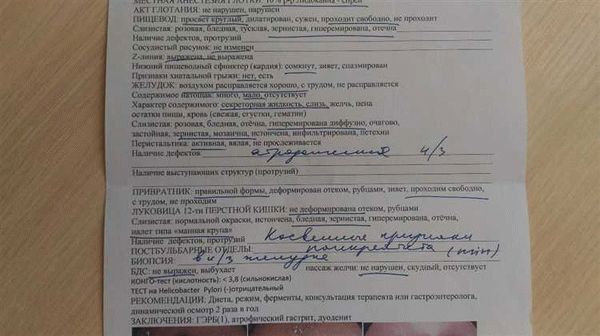 МЕСТНАЯ АНЕСТЕЗИЯ ГЛОТКИ: 10% р-р лидокаина - спрей
АКТ ГЛОТАНИЯ: не нарушен, нарушен
ПИЩЕВОД: просвет круглый, дилатирован, сужен, проходит свободно, не проходит
Слизистая: розовая, бледная, тусклая, зернистая, гиперемирована, отёчна
Наличие дефектов, протрузий
Сосудистый рисунок: не изменен
Z-линия: выражена, не выражена
Нижний пищеводный сфинктер (кардия): сомкнут, зияет, спазмирован
Признаки хиатальной грыжи: нет, есть
ЖЕЛУДОК: воздухом расправляется хорошо, с трудом, не расправляется
Содержимое натощак: много, мало, отсутствует
Характер содержимого: секреторная жидкость, слизь, желчь, пена
остатки пищи, кровь (свежая, сгустки, гематин)
Слизистая: розовая, бледная, отёчна, гиперемирована диффузно, очагово,
застойная, зернистая, мозаична, истончена, инфильтрированна, петехии
Перистальтика: активная, вялая, не прослеживается
Наличие дефектов н/3
Наличие выступающих структур (протрузий)
ПРИВРАТНИК: правильной формы, деформирован отеком, рубцами, зияет, проходим свободно,
с трудом, не проходим
ЛУКОВИЦА 12-ти ПЕРСТНОЙ КИШКИ: не деформирована отеком, рубцами
Слизистая: нормальной окраски, истончена, бледная, зернистая, гиперемирована, отёчна,
налет типа «манная крупа»
Наличие дефектов, протрузий Косвенные признаки
ПОСТБУЛЬБАРНЫЕ ОТДЕЛЫ: панкреатита
БИОПСИЯ: в н/3 желудка
БДС: не выражен, выбухает пассаж желчи: не нарушен, скудный, отсутствует
КОНГО-тест (кислотность): < 3,8 (сильнокислая)
ТЕСТ на Helicobacter Pylori (-)отрицательный
РЕКОМЕНДАЦИИ: Диета, режим, ферменты, консультация терапевта или гастроэнтеролога,
динамический осмотр 2 раза в год
ЗАКЛЮЧЕНИЕ: ГЭРБ(1), атрофический гастрит, дуоденит